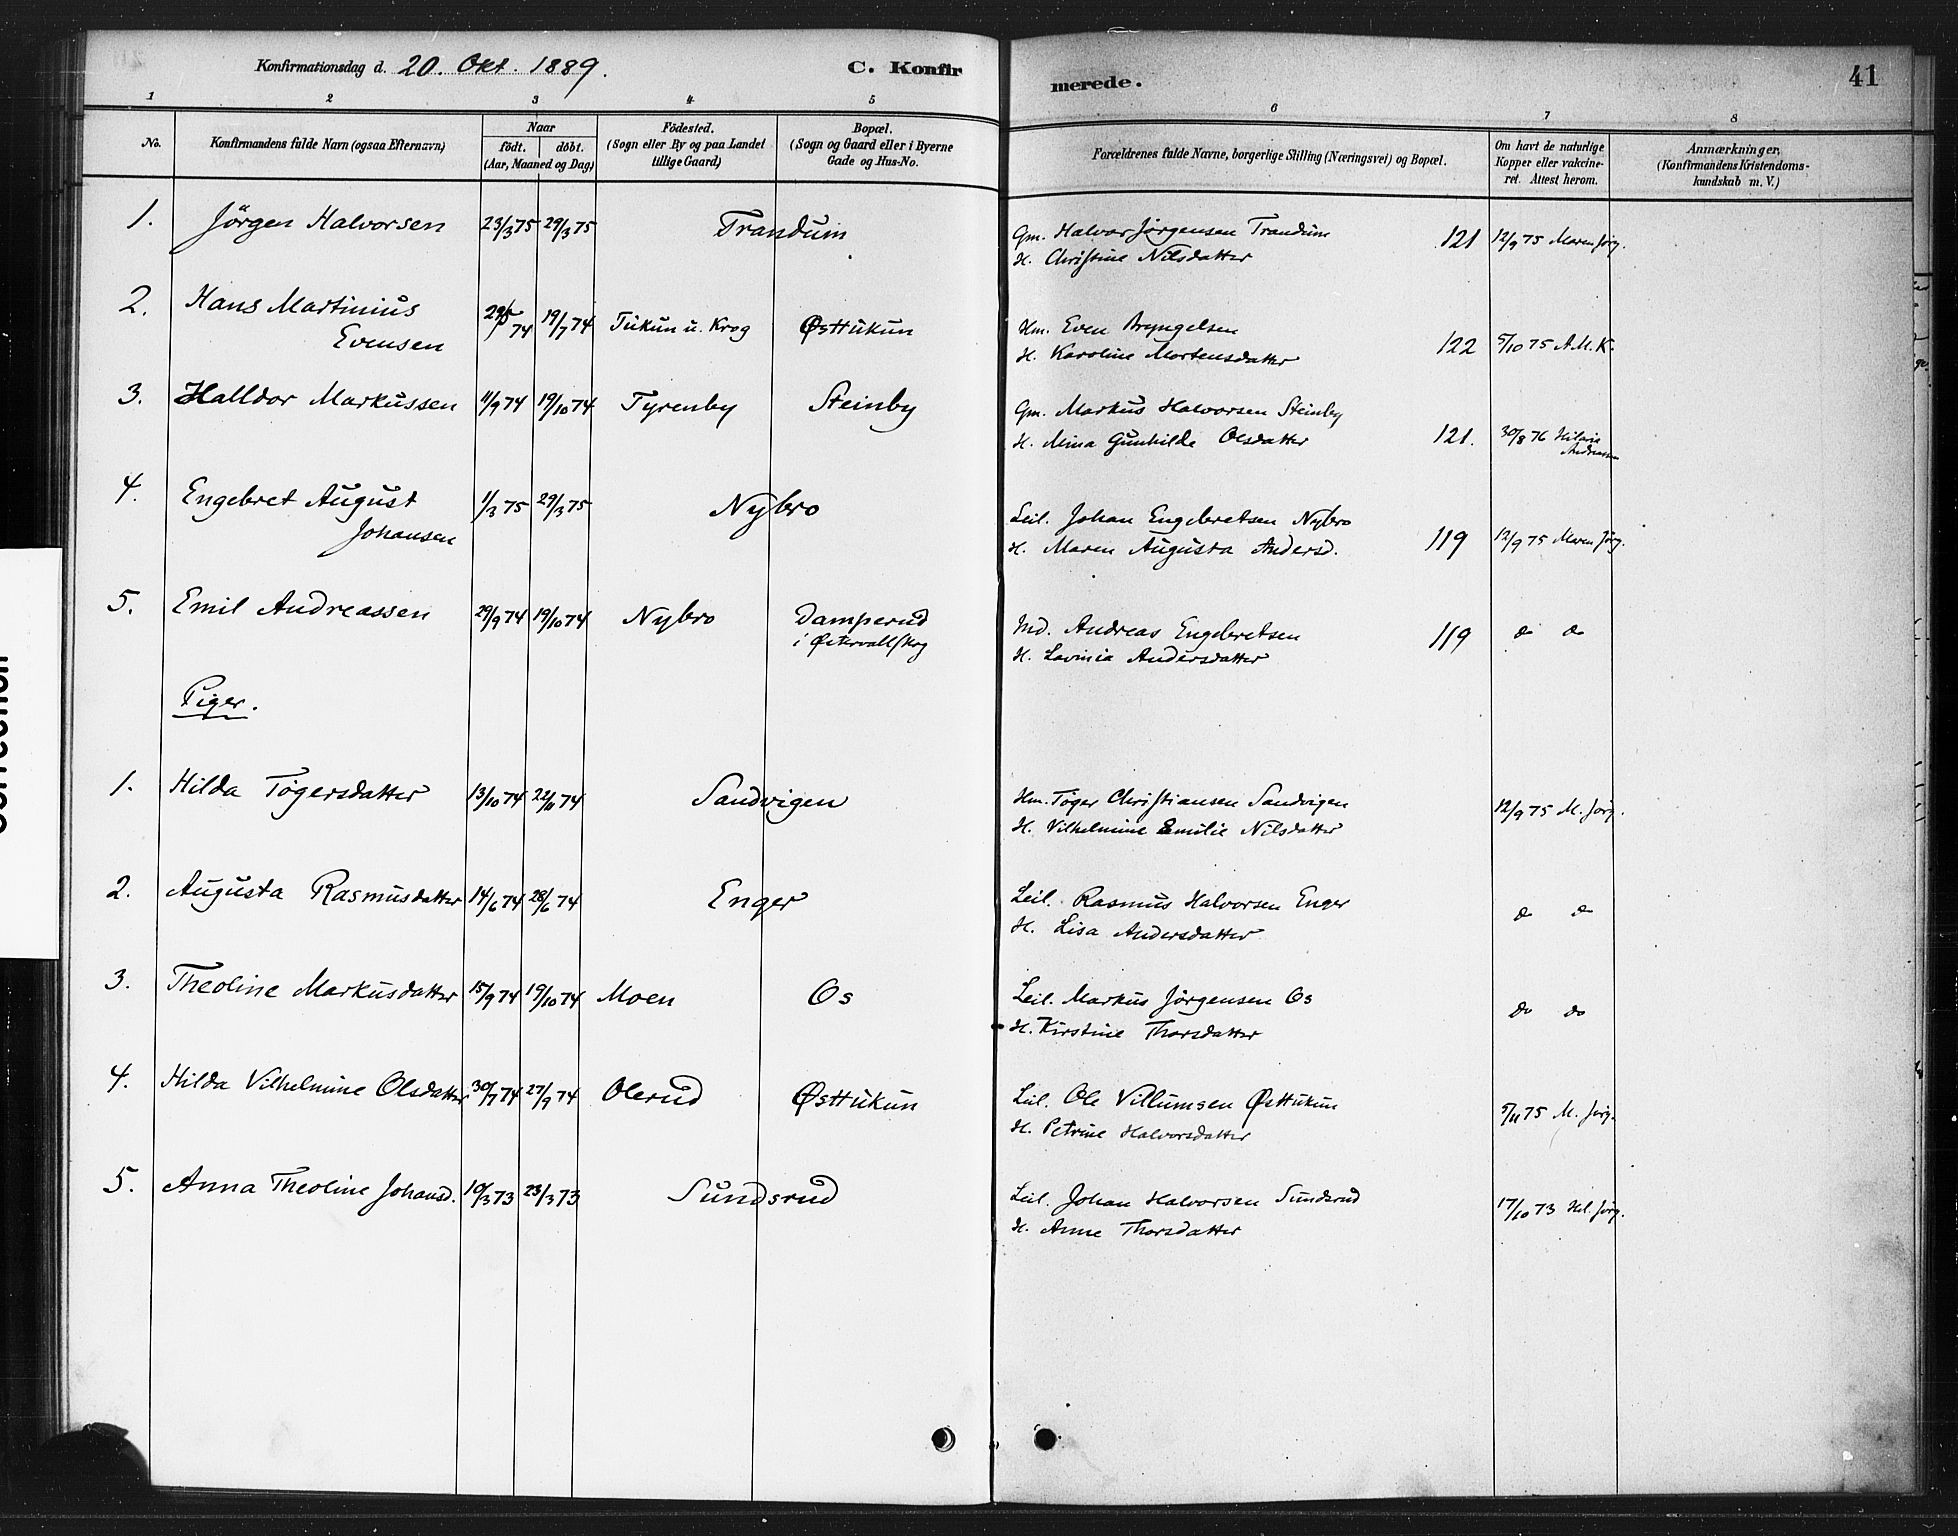 Konfirmationsdag d. 20. Okt. 1889.
C. Konfirmerede.
41
1 2 3 4 5 6 7 8
No.
Konfirmandens fulde Navn (ogsaa Efternavn)
Naar
födt. döbt.
(Aar, Maaned og Dag)
Födested.
(Sogn eller By og paa Landet
tillige Gaard)
Bopæl.
(Sogn og Gaard eller i Byerne
Gade og Hus-No.
Forældrenes fulde Navne, borgerlige Stilling (Næringsvei) og Bopæl.
Om havt de naturlige
Kopper eller vakcine-
ret. Attest herom.
Anmærkninger,
(Konfirmandens Kristendoms-
kundskab m. V.)
1. Jörgen Halvorsen 23/3 75 29/3 75 Trandum
Gm. Halvor Jørgensen Trandum 121 12/9 75 Maren Jørg.
H. Christine Nilsdatter
2. Hans Martinius
Evensen 29/5 74 19/7 74 Tukun u. Krog Østtukun
Hm. Even Bryngelsen
H. Karoline Mortensdatter 122 5/10 75 A.M.K.
3. Halldor Markussen 11/9 74 19/10 74 Tyrenby Steinby
Gm. Markus Halvorsen Steinby
H. Mina Gunhilde Olsdatter 121. 30/8 76 Hilarie
Andreassen
4. Engebret August
Johansen 1/3 75 29/3 75 Nybro
Leil. Johan Engebretsen Nybro
H. Maren Augusta Andersd. 119 12/9 75 Maren Jörg.
5. Emil Andreassen 29/9 74 19/10 74 Nybro Damperud
i Østervallskog
Ind. Andreas Engebretsen 119 do do
H. Lavinia Andersdatter
Piger.
1. Hilda Tögersdatter 13/10 74 22/11 74 Sandvigen
Hm. Töger Christiansen Sandvigen 12/9 75 M. Jörg.
H. Vilhelmine Emilie Nilsdatter
2. Augusta Rasmusdatter 14/6 74 28/6 74 Enger
Leil. Rasmus Halvorsen Enger do do
H. Lisa Andersdatter
3. Theoline Markusdatter 15/9 74 19/10 74 Moen Os
Leil. Markus Jørgensen Os do do
H. Kirstine Thorsdatter
4. Hilda Vilhelmine Olsdatter 30/7 74 27/9 74 Olerud Østtukun
Leil. Ole Villumsen Østtukun 5/11 75 M. Jörg.
H. Petrine Halvorsdatter
5. Anna Theoline Johansd. 10/3 73 23/3 73 Sundsrud
Leil. Johan Halvorsen Sundsrud 17/10 73 Hel. Jörg.
H. Anne Thorsdatter